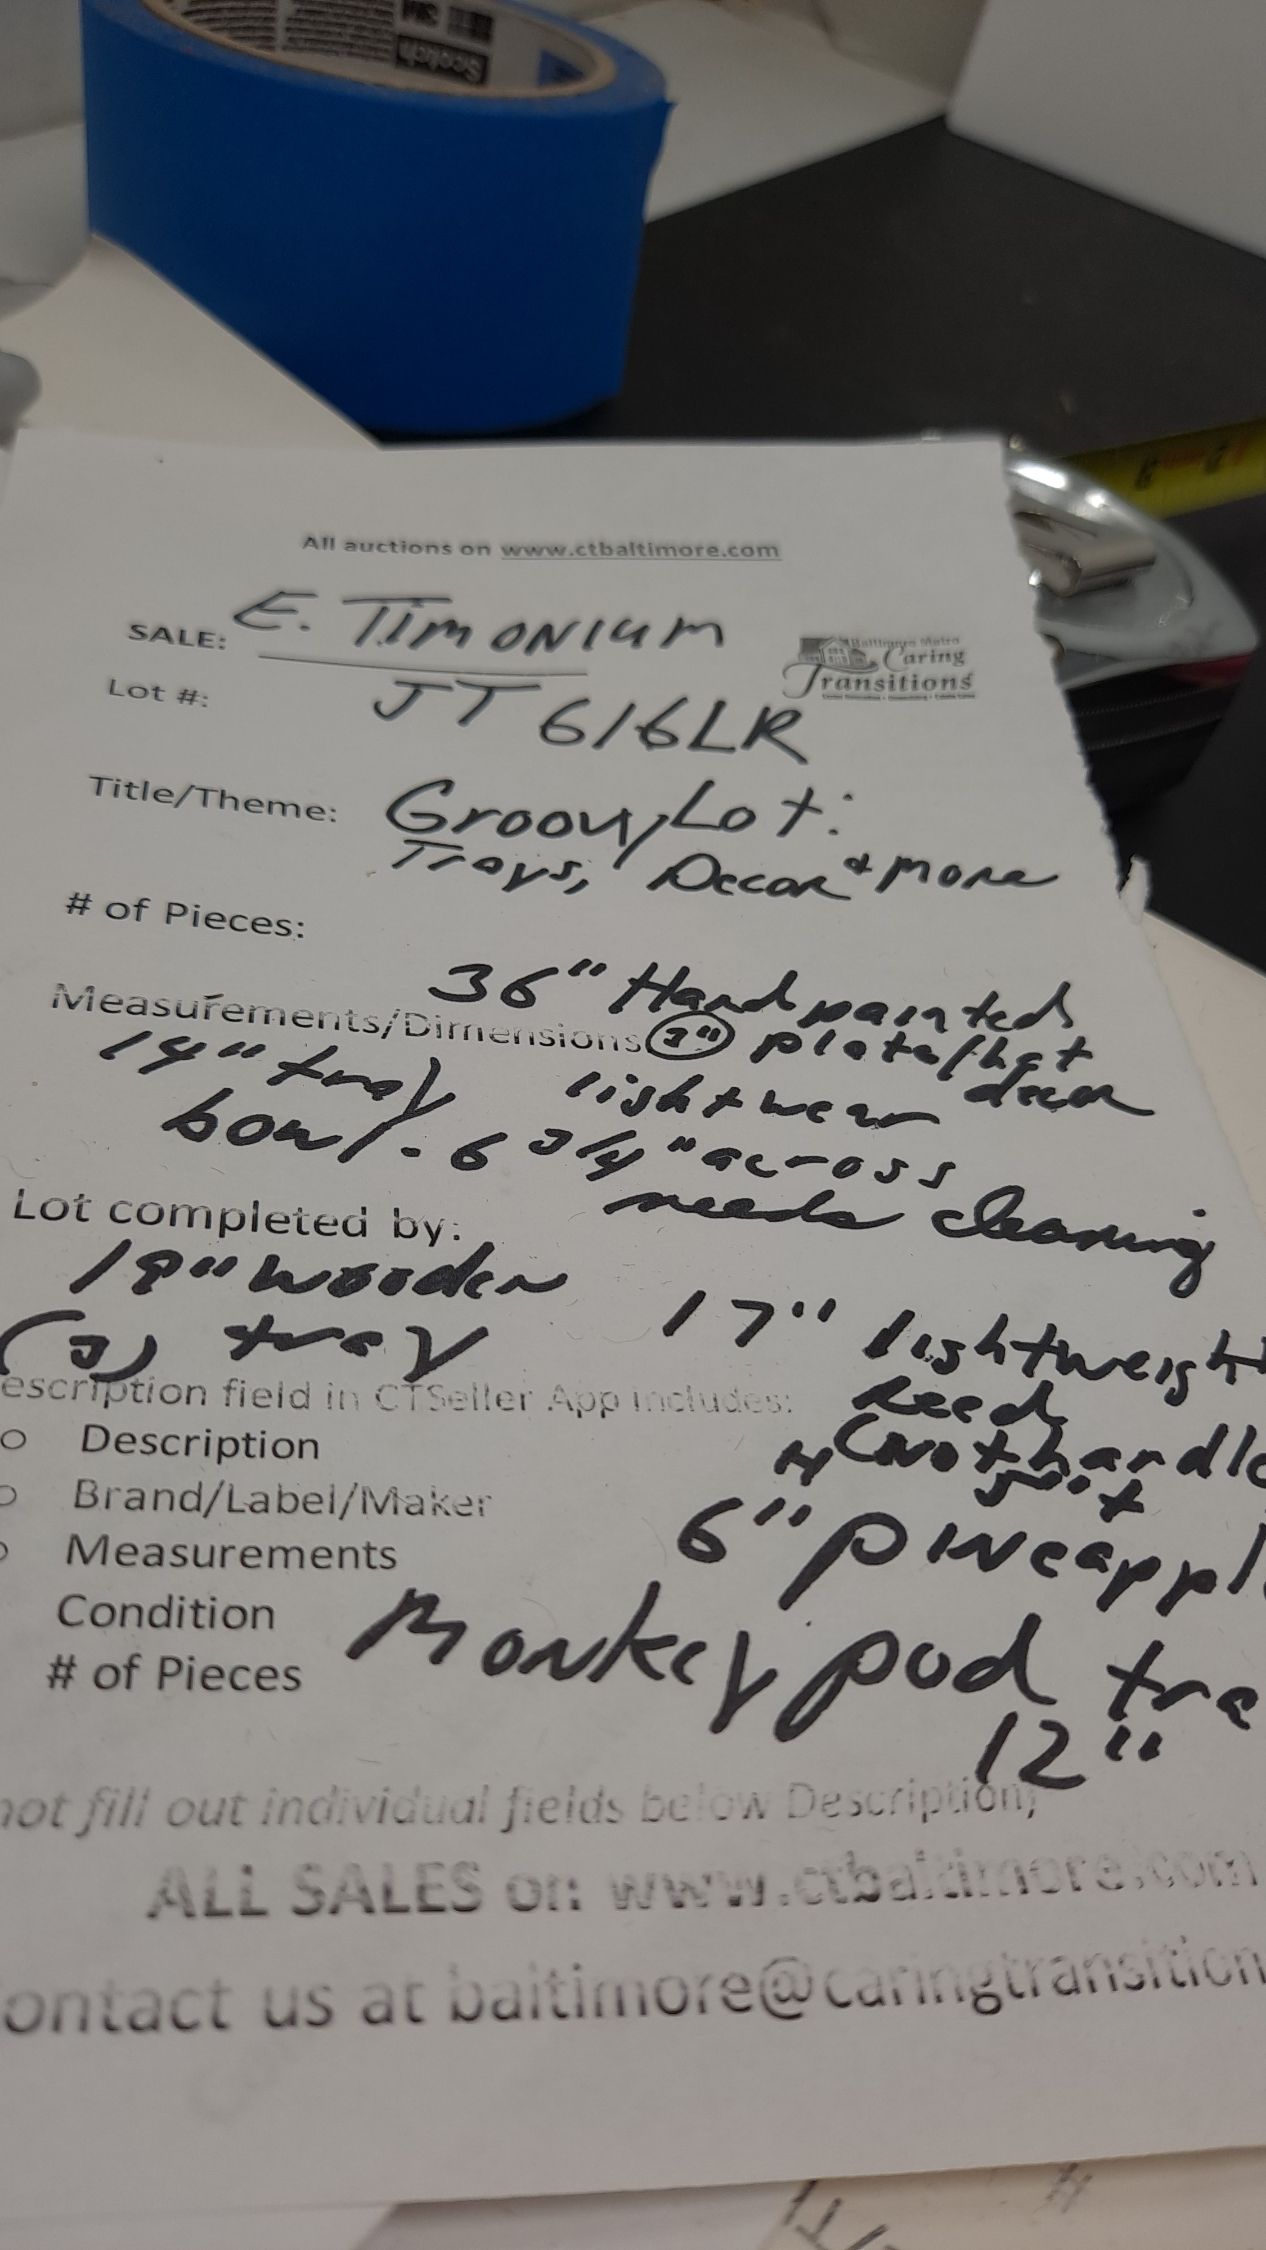 Scotch
3M
All auctions on www.ctbaltimore.com
SALE: E. Timonium
Baltimore Metro
Caring
Transitions
Lot #: JT 616LR
Title/Theme: Groovy Lot:
Trays, Decor & more
# of Pieces:
36" Handpainted
Measurements/Dimensions plate/hat
14" tray lightwear decor
bowl. 6 3/4" across
needs cleaning
Lot completed by:
wooden 17" lightweight
tray
escription field in CTSeller App includes: Reed
Description (Not handle
Brand/Label/Maker
6" pineappl
Measurements
Condition Monkey pod tra
# of Pieces
12"
not fill out individual fields below Description,
ALL SALES on www.ctbaltimore.com
ontact us at baltimore@caringtransition